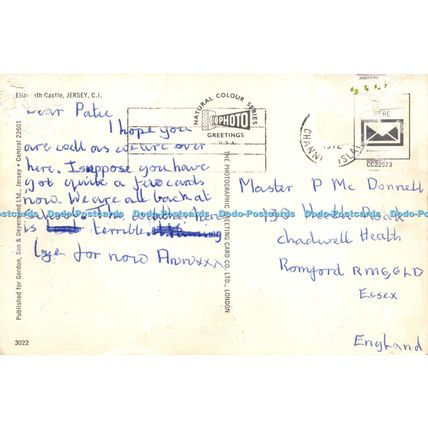 Elizabeth Castle, JERSEY, C.I.
Dear Patie
I hope you
are well as we are over
here. I suppose you have
got quite a few cards
now. We are all back at
school. The weather here
is terrible.
bye for now Annxxx
NATURAL COLOUR SERIES
PHOTO
GREETINGS
U.S.A.
CHANN
ISLA
1972
HERE
CC22073
THE PHOTOGRAPHIC GREETING CARD CO. LTD., LONDON
Published for Gordon, Son & Deyerland Ltd., Jersey · Central 22601
3022
Master P Mc Donnell
Road
chadwell Heath
Romford RM6,6LD
Essex
England
Dodo-Postcards Dodo-Postcards Dodo-Postcards Dodo-Postcards Dodo-Postcards